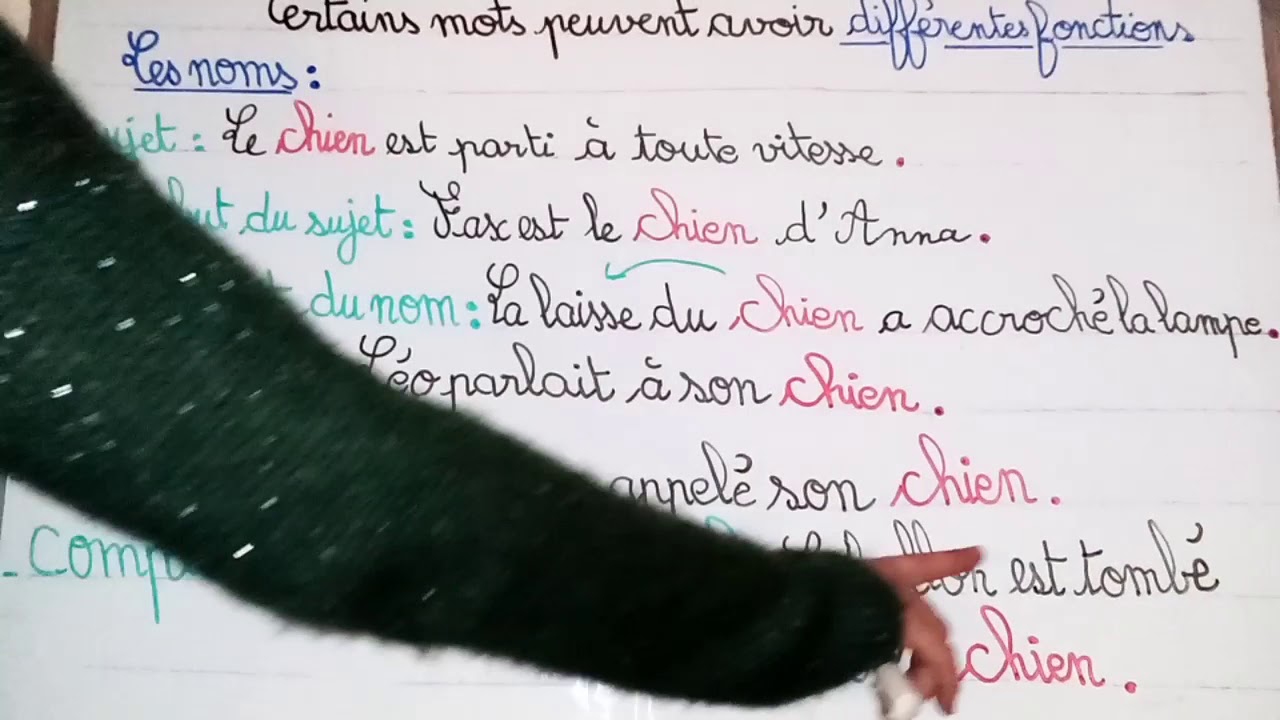 Certains mots peuvent avoir différentes fonctions
Les noms :
ujet : Le chien est parti à toute vitesse.
but du sujet : Fax est le chien d'Anna.
du nom : La laisse du chien a accroché la lampe.
Léo parlait à son chien.
appelé son chien.
- Comp est tombé
chien.